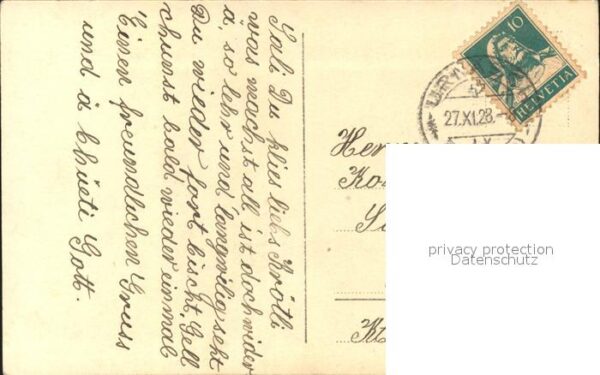 Sali Du klies liebs Brötli
was machst all ist doch wider
ä, so lehr und langwilig seht
Du wieder fort bischt, Gell
chunst bald wieder einmal
Einen freundlichen Gruss
und ä bhüeti Gott.
10
HELVETIA
27.XI.28.
Herrn
privacy protection
Datenschutz